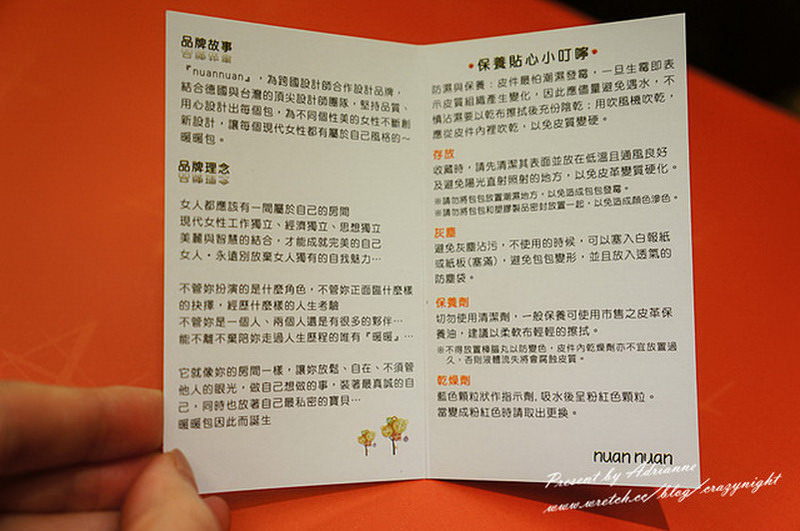 品牌故事
『nuannuan』，為跨國設計師合作設計品牌，
結合德國與台灣的頂尖設計師團隊，堅持品質、
用心設計出每個包，為不同個性美的女性不斷創
新設計，讓每個現代女性都有屬於自己風格的～
暖暖包。
品牌理念
女人都應該有一間屬於自己的房間
現代女性工作獨立、經濟獨立、思想獨立
美麗與智慧的結合，才能成就完美的自己
女人，永遠別放棄女人獨有的自我魅力…
不管妳扮演的是什麼角色，不管妳正面臨什麼樣
的抉擇，經歷什麼樣的人生考驗
不管妳是一個人、兩個人還是有很多的夥伴…
能不離不棄陪妳走過人生歷程的唯有『暖暖』…
它就像妳的房間一樣，讓妳放鬆、自在、不須管
他人的眼光，做自己想做的事，裝著最真誠的自
己，同時也放著自己最私密的寶貝…
暖暖包因此而誕生
•保養貼心小叮嚀•
防濕與保養：皮件最怕潮濕發霉，一旦生霉即表
示皮質組織產生變化，因此應儘量避免遇水，不
慎沾濕要以乾布擦拭後充份陰乾；用吹風機吹乾，
應從皮件內裡吹乾，以免皮質變硬。
存放
收藏時，請先清潔其表面並放在低溫且通風良好
及避免陽光直射照射的地方，以免皮革變質硬化。
※請勿將包包放置潮濕地方，以免造成包包發霉。
※請勿將包包和塑膠製品密封放置一起，以免造成顏色滲色。
灰塵
避免灰塵沾污，不使用的時候，可以塞入白報紙
或紙板(塞滿)，避免包包變形，並且放入透氣的
防塵袋。
保養劑
切勿使用清潔劑，一般保養可使用市售之皮革保
養油，建議以柔軟布輕輕的擦拭。
※不得放置樟腦丸以防變色，皮件內乾燥劑亦不宜放置過
久，否則液體流失將會腐蝕皮質。
乾燥劑
藍色顆粒狀作指示劑，吸水後呈粉紅色顆粒。
當變成粉紅色時請取出更換。
nuan nuan
Present by Adrianne
www.wretch.cc/blog/crazynight